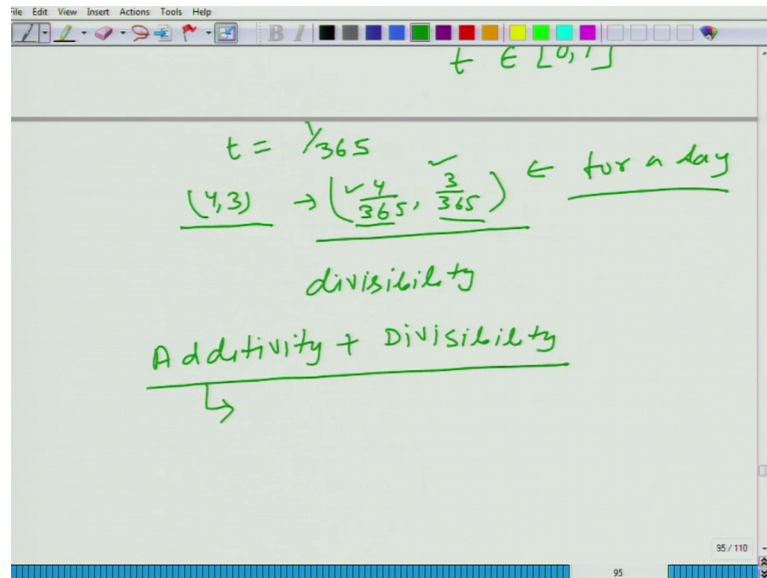 ile Edit View Insert Actions Tools Help
t ∈ [0,1]
t = 1/365
(4,3) → (4/365, 3/365) ← for a day
divisibility
Additivity + Divisibility
95 / 110
95